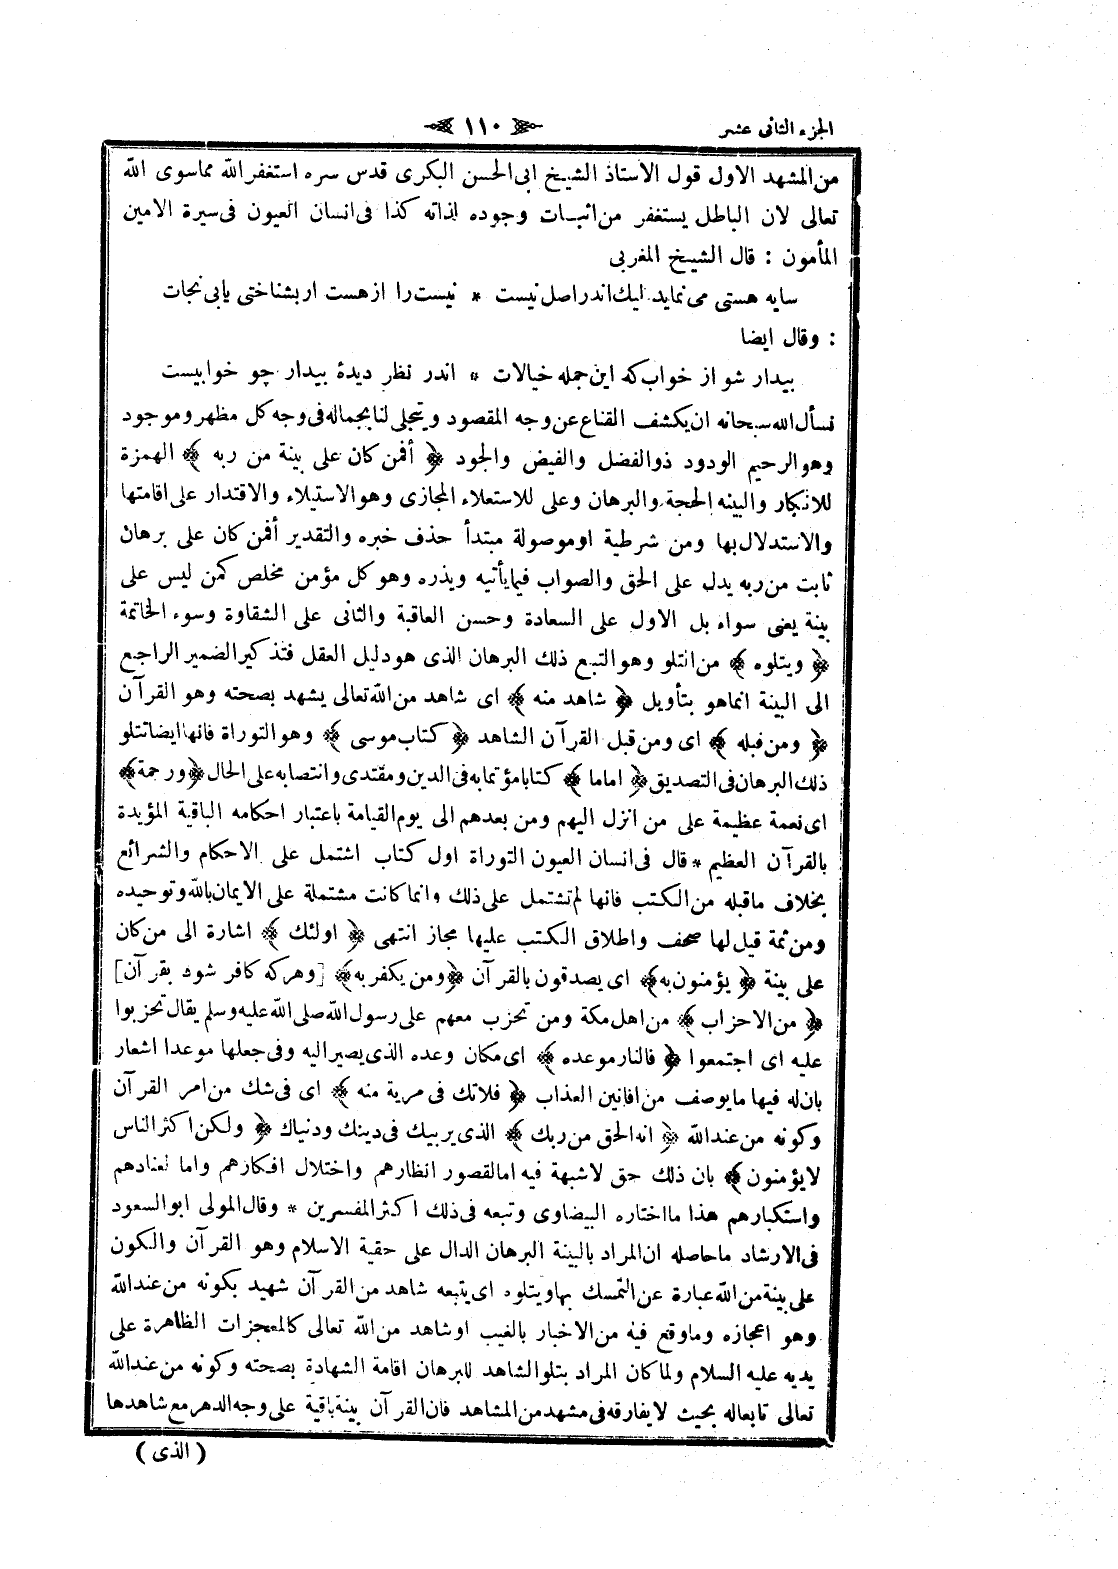 الجزء الثانى عشر
١١٠
من المشهد الاول قول الاستاذ الشيخ ابى الحسن البكرى قدس سره استغفر الله مماسوى الله
تعالى لان الباطل يستغفر من اثبات وجوده لذاته كذا فى انسان العيون فى سيرة الامين
المأمون : قال الشيخ المغربى
سايه هستى مى نمايد ليك اندر اصل نيست * نيست را از هست ار بشناختى يابى نجات
: وقال ايضا
بيدار شو از خواب كه اين جمله خيالات * اندر نظر ديدۀ بيدار چو خوابيست
نسأل الله سبحانه ان يكشف القناع عن وجه المقصود ويتجلى لنا بجماله فى وجه كل مظهر وموجود
وهو الرحيم الودود ذو الفضل والفيض والجود ﴿ أفمن كان على بينة من ربه ﴾ الهمزة
للانكار والبينه الحجة والبرهان وعلى للاستعلاء المجازى وهو الاستيلاء والاقتدار على اقامتها
والاستدلال بها ومن شرطية او موصولة مبتدأ حذف خبره والتقدير أفمن كان على برهان
ثابت من ربه يدل على الحق والصواب فيما يأتيه ويذره وهو كل مؤمن مخلص كمن ليس على
بينة يعنى سواء بل الاول على السعادة وحسن العاقبة والثانى على الشقاوة وسوء الخاتمة
﴿ ويتلوه ﴾ من التلو وهو التبع ذلك البرهان الذى هو دليل العقل فتذكير الضمير الراجع
الى البينة انما هو بتأويل ﴿ شاهد منه ﴾ اى شاهد من الله تعالى يشهد بصحته وهو القرآن
﴿ ومن قبله ﴾ اى ومن قبل القرآن الشاهد ﴿ كتاب موسى ﴾ وهو التوراة فانها ايضا تتلو
ذلك البرهان فى التصديق ﴿ اماما ﴾ كتابا مؤتما به فى الدين ومقتدى وانتصابه على الحال ﴿ ورحمة ﴾
اى نعمة عظيمة على من انزل اليهم ومن بعدهم الى يوم القيامة باعتبار احكامه الباقية المؤيدة
بالقرآن العظيم * قال فى انسان العيون التوراة اول كتاب اشتمل على الاحكام والشرائع
بخلاف ماقبله من الكتب فانها لم تشتمل على ذلك وانما كانت مشتملة على الايمان بالله وتوحيده
ومن ثمة قيل لها صحف واطلاق الكتب عليها مجاز انتهى ﴿ اولئك ﴾ اشارة الى من كان
على بينة ﴿ يؤمنون به ﴾ اى يصدقون بالقرآن ﴿ ومن يكفر به ﴾ [وهركه كافر شود بقرآن]
﴿ من الاحزاب ﴾ من اهل مكة ومن تحزب معهم على رسول الله صلى الله عليه وسلم يقال تحزبوا
عليه اى اجتمعوا ﴿ فالنار موعده ﴾ اى مكان وعده الذى يصير اليه وفى جعلها موعدا اشعار
بان له فيها مايوصف من افانين العذاب ﴿ فلاتك فى مرية منه ﴾ اى فى شك من امر القرآن
وكونه من عند الله ﴿ انه الحق من ربك ﴾ الذى يربيك فى دينك ودنياك ﴿ ولكن اكثر الناس
لايؤمنون ﴾ بان ذلك حق لا شبهة فيه اما لقصور انظارهم واختلال افكارهم واما لعنادهم
واستكبارهم هذا ما اختاره البيضاوى وتبعه فى ذلك اكثر المفسرين * وقال المولى ابو السعود
فى الارشاد ماحاصله ان المراد بالبينة البرهان الدال على حقية الاسلام وهو القرآن والكون
على بينة من الله عبارة عن التمسك بها ويتلوه اى يتبعه شاهد من القرآن شهيد بكونه من عند الله
وهو اعجازه وما وقع فيه من الاخبار بالغيب او شاهد من الله تعالى كالمعجزات الظاهرة على
يديه عليه السلام ولما كان المراد بتلو الشاهد للبرهان اقامة الشهادة بصحته وكونه من عند الله
تعالى تابعا له بحيث لا يفارقه فى مشهد من المشاهد فان القرآن بينة باقية على وجه الدهر مع شاهدها
( الذى )